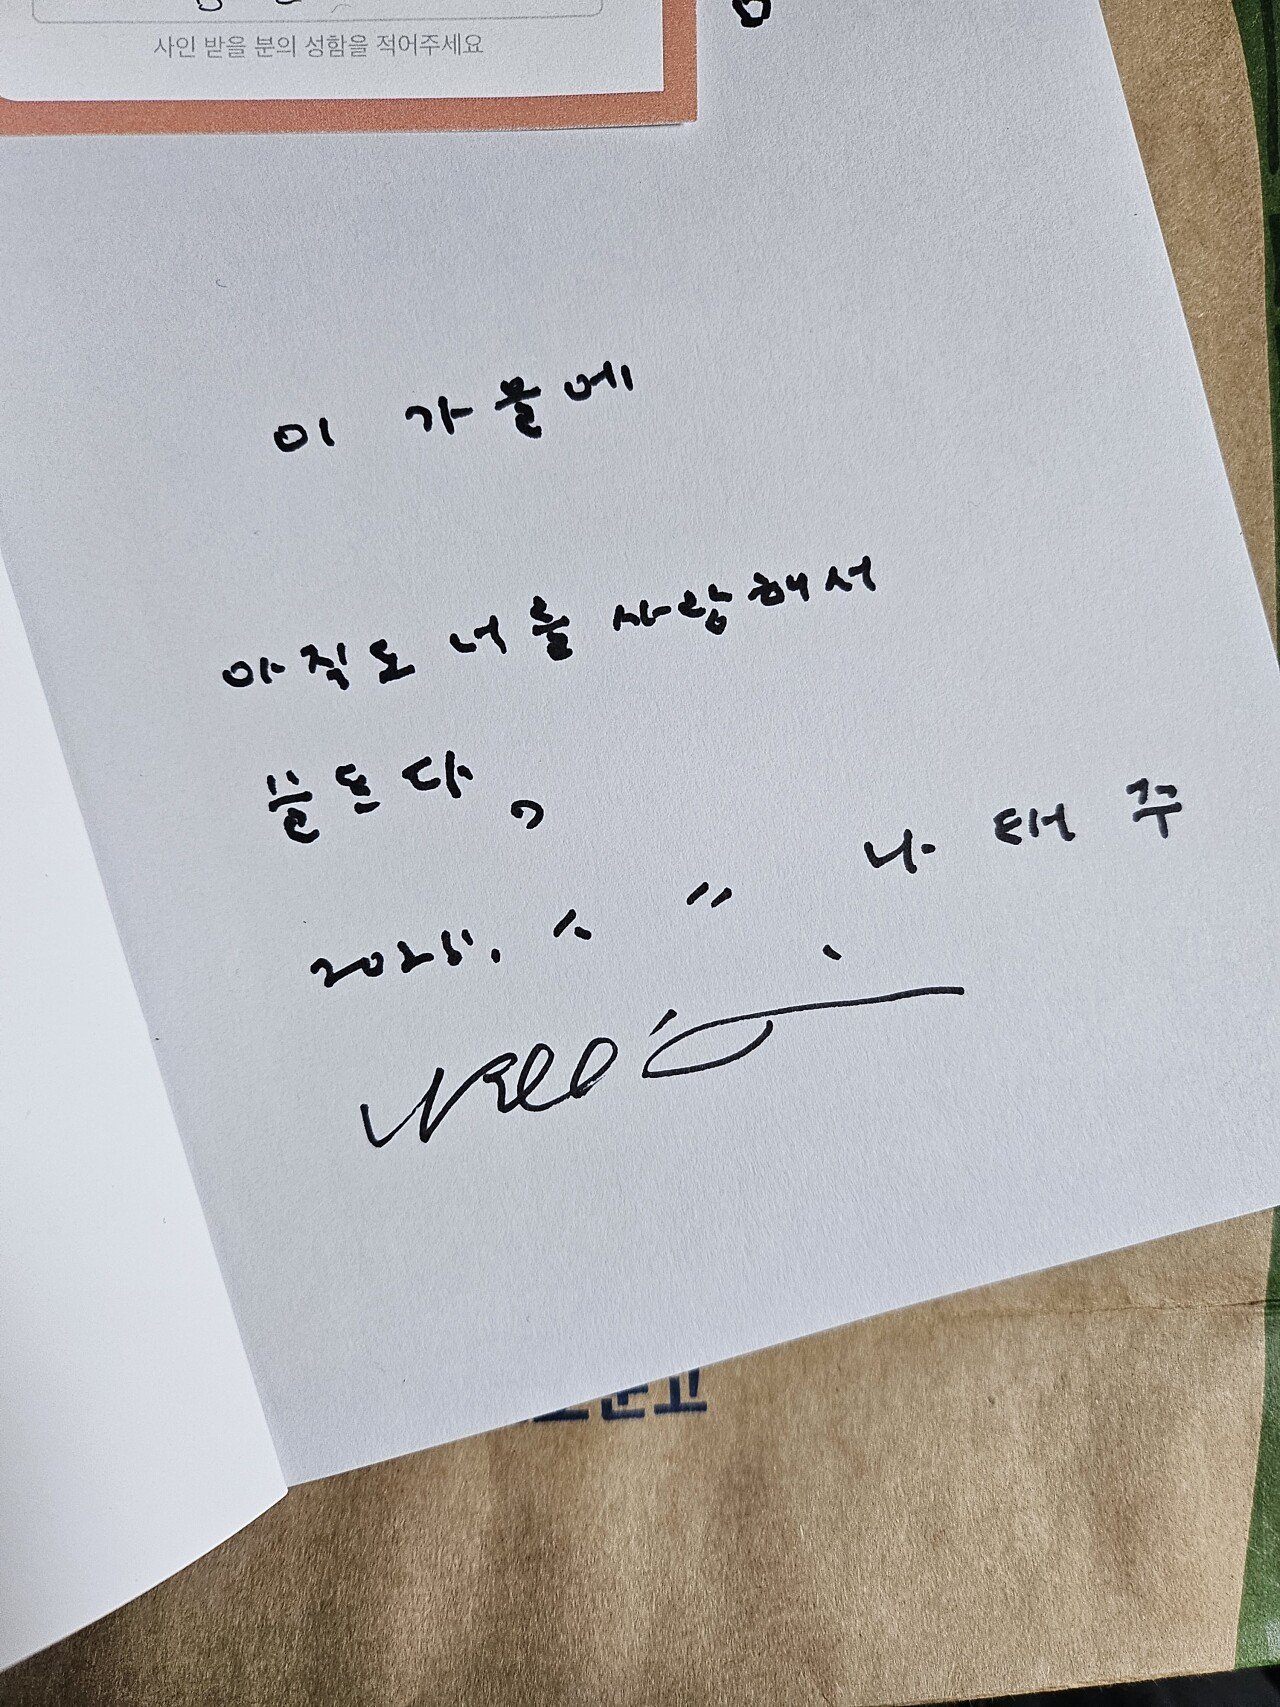 사인 받을 분의 성함을 적어주세요
이 가을에
아직도 너를 사랑해서
슬프다,
나 태 주
2025.
문고